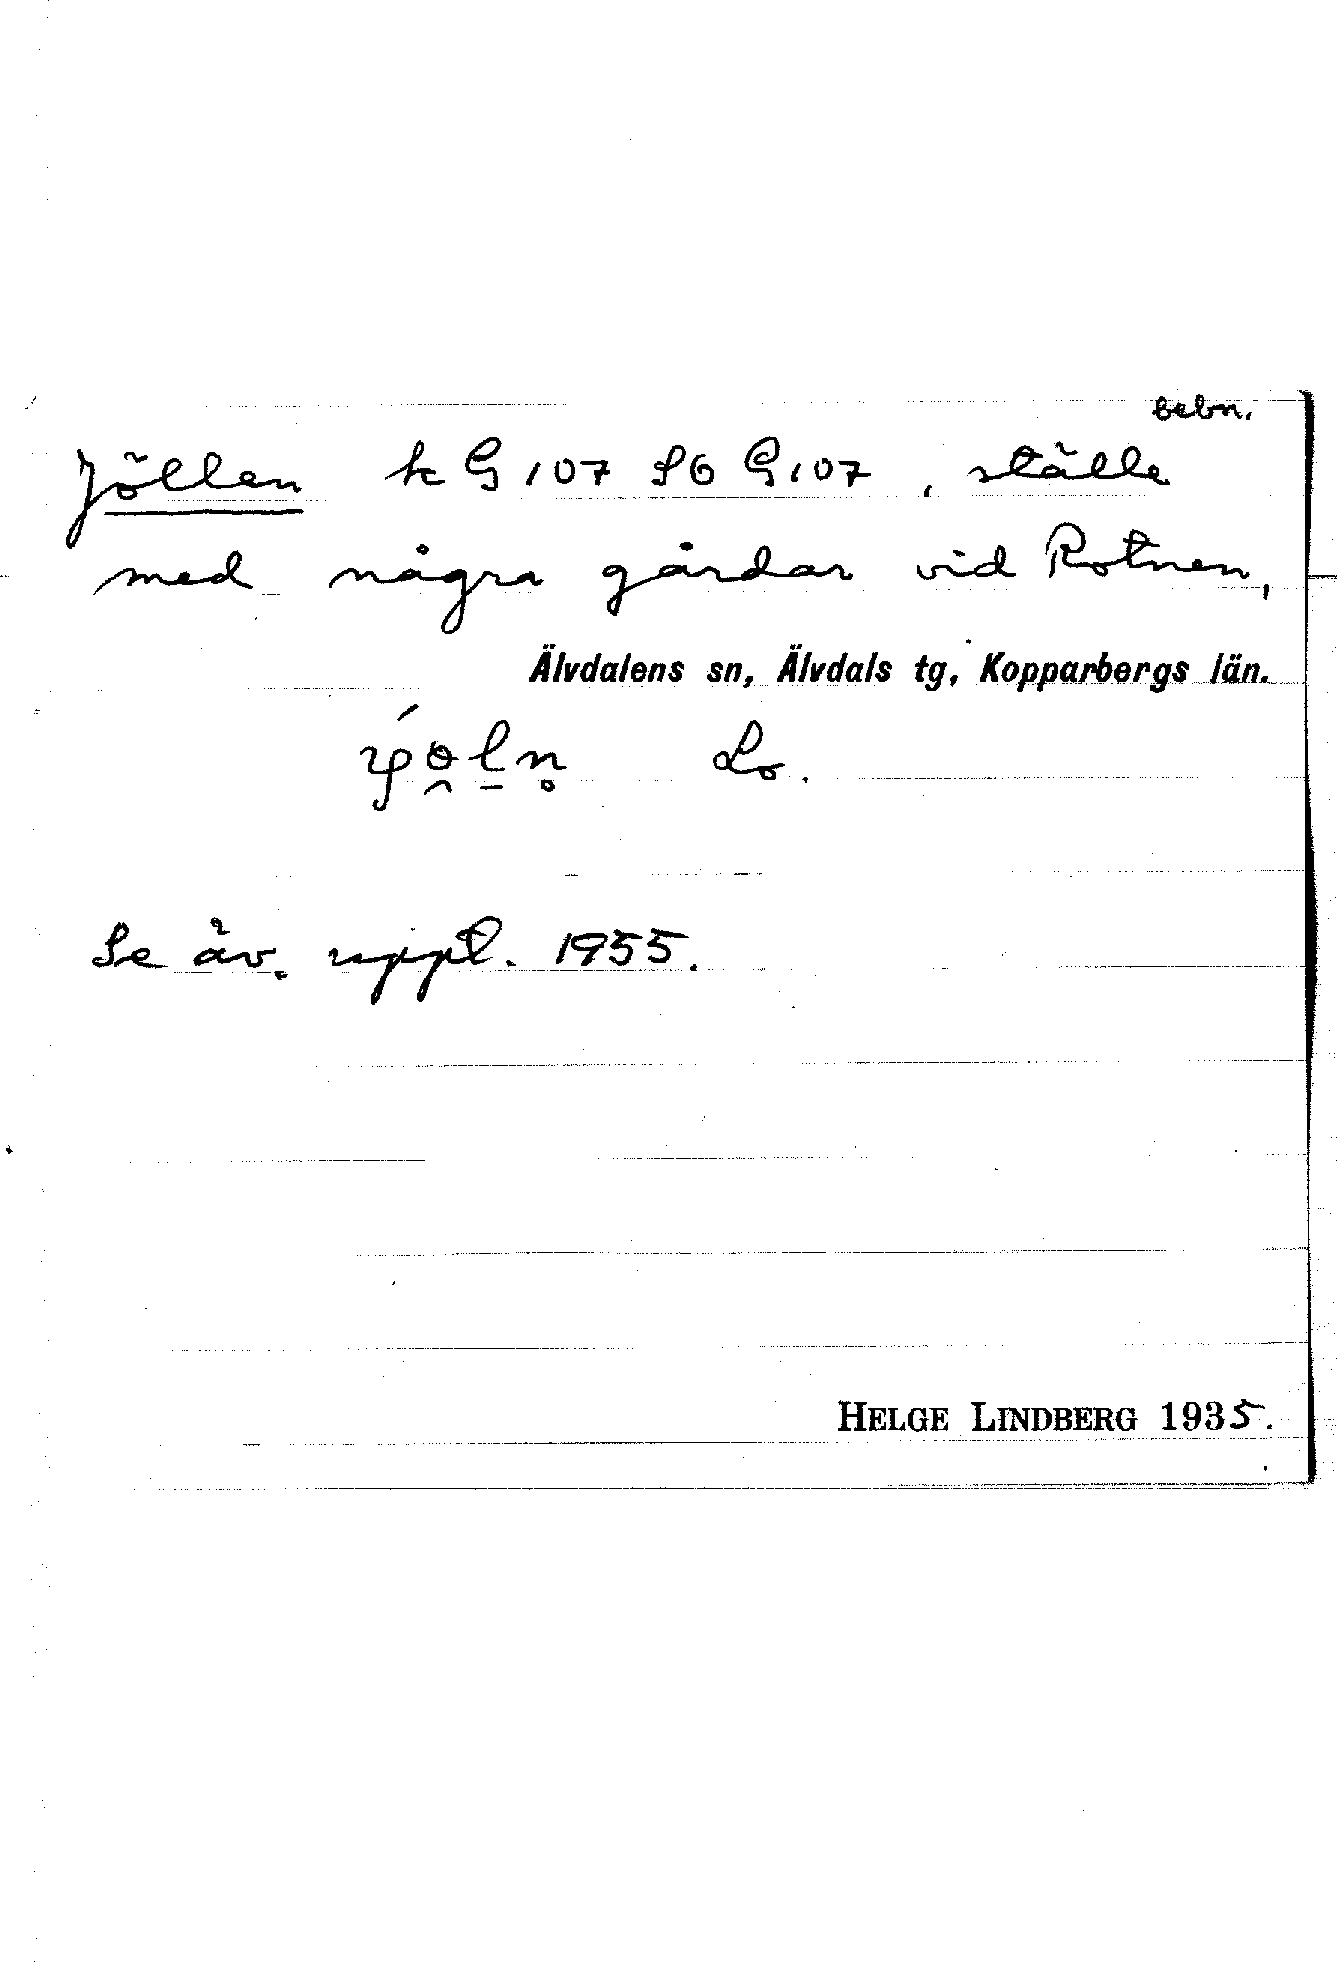 bebn.
Jöllen k G 107 SO G 107, ställe
med några gårdar vid Rotnen,
Älvdalens sn, Älvdals tg, Kopparbergs län.
Lo.
Se äv. uppt. 1955.
HELGE LINDBERG 1935.